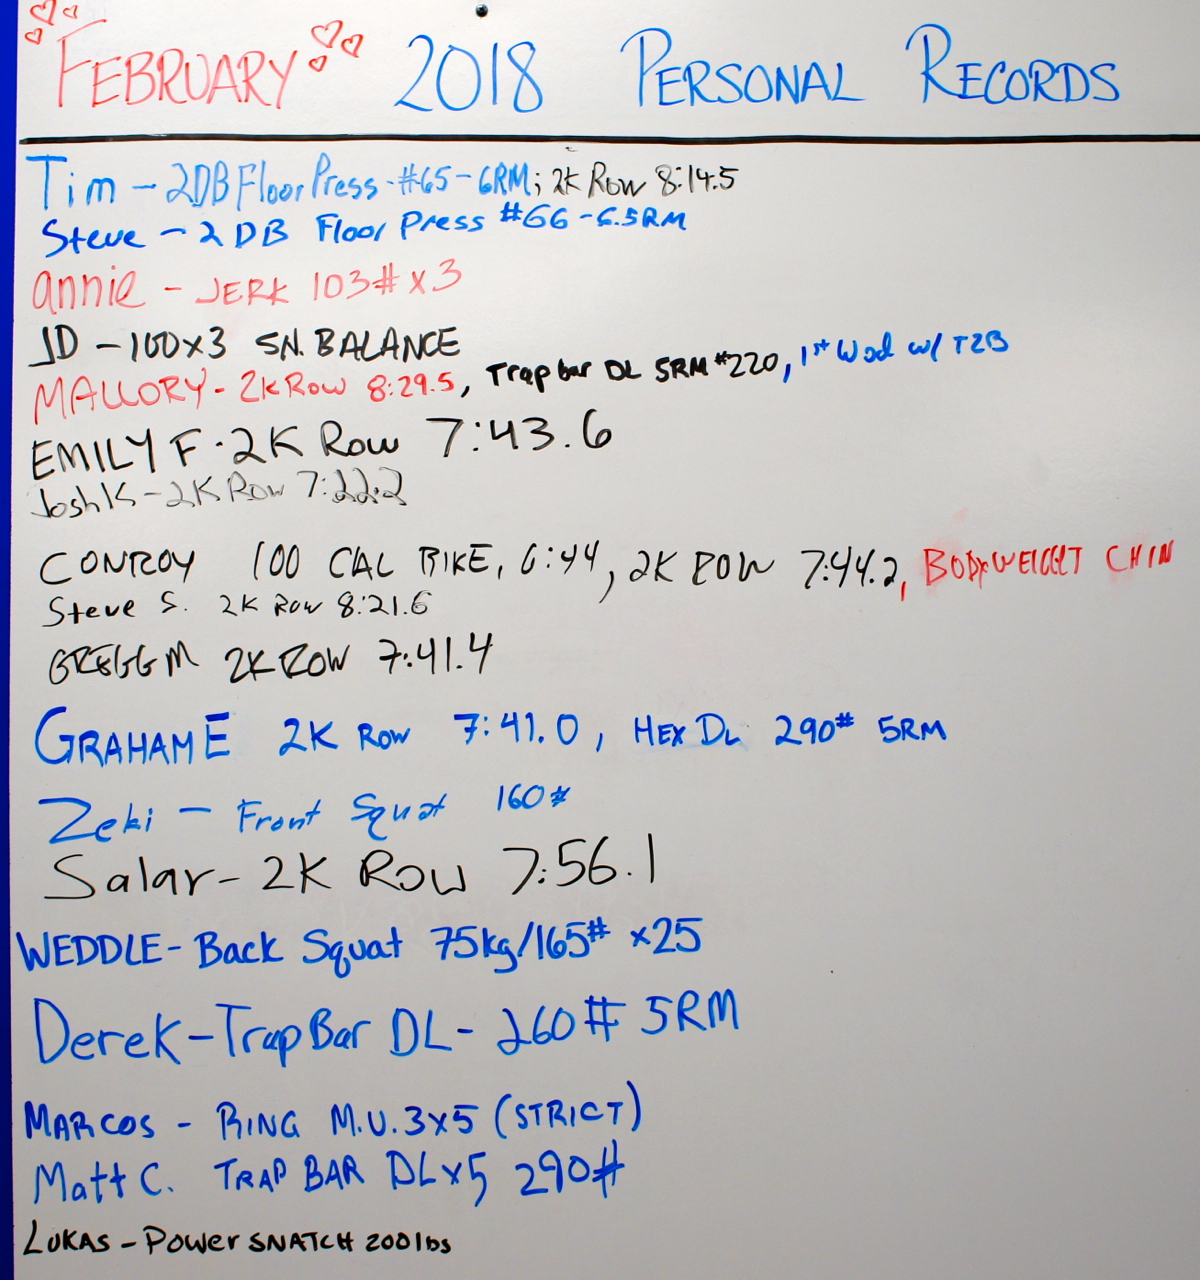 FEBRUARY 2018 PERSONAL RECORDS
Tim - 2DB Floor Press - #65 - 6RM; 2K Row 8:14.5
Steve - 2 DB Floor Press #66 - 6.5RM
annie - JERK 103# x 3
JD - 100x3 SN. BALANCE
MALLORY - 2K Row 8:29.5, Trap bar DL 5RM #220, 1st Wod w/ T2B
EMILY F - 2K Row 7:43.6
Josh K - 2K Row 7:22.2
CONROY 100 CAL BIKE, 6:44, 2K ROW 7:44.2, BODYWEIGHT CHIN
Steve S. 2K Row 8:21.6
GREGG M 2K ROW 7:41.4
GRAHAM E 2K Row 7:41.0, HEX DL 290# 5RM
Zeki - Front Squat 160#
Salar - 2K Row 7:56.1
WEDDLE - Back Squat 75kg/165# x25
Derek - Trap Bar DL - 260# 5RM
MARCOS - RING M.U. 3x5 (STRICT)
Matt C. TRAP BAR DL x5 290#
LUKAS - POWER SNATCH 200lbs